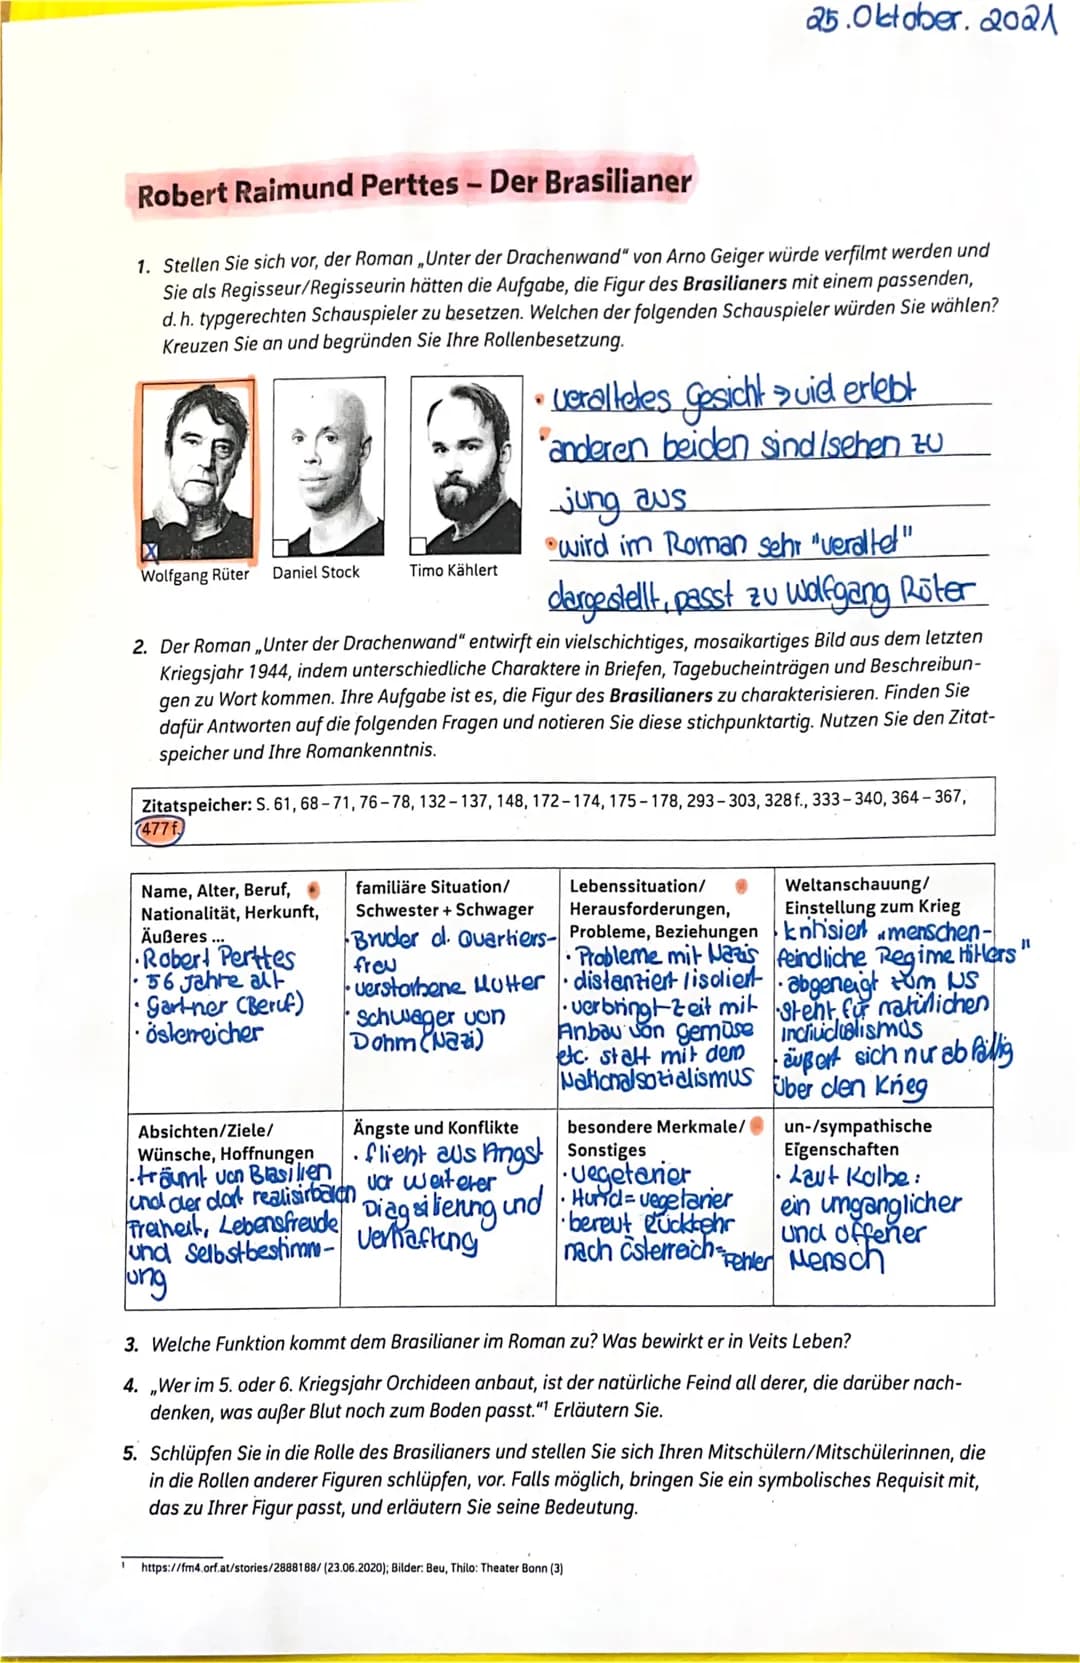 25.Oktober.2021
Robert Raimund Perttes – Der Brasilianer
1. Stellen Sie sich vor, der Roman „Unter der Drachenwand“ von Arno Geiger würde verfilmt werden und
Sie als Regisseur/Regisseurin hätten die Aufgabe, die Figur des Brasilianers mit einem passenden,
d. h. typgerechten Schauspieler zu besetzen. Welchen der folgenden Schauspieler würden Sie wählen?
Kreuzen Sie an und begründen Sie Ihre Rollenbesetzung.
• veraltetes Gesicht → viel erlebt
• anderen beiden sind/sehen zu
jung aus
• wird im Roman sehr "veraltet"
dargestellt, passt zu Wolfgang Rüter
Wolfgang Rüter
Daniel Stock
Timo Kählert
2. Der Roman „Unter der Drachenwand“ entwirft ein vielschichtiges, mosaikartiges Bild aus dem letzten
Kriegsjahr 1944, indem unterschiedliche Charaktere in Briefen, Tagebucheinträgen und Beschreibun-
gen zu Wort kommen. Ihre Aufgabe ist es, die Figur des Brasilianers zu charakterisieren. Finden Sie
dafür Antworten auf die folgenden Fragen und notieren Sie diese stichpunktartig. Nutzen Sie den Zitat-
speicher und Ihre Romankenntnis.
Zitatspeicher: S. 61, 68–71, 76–78, 132–137, 148, 172–174, 175–178, 293–303, 328 f., 333–340, 364–367,
477 f.
Name, Alter, Beruf,
Nationalität, Herkunft,
Äußeres ...
• Robert Perttes
• 56 Jahre alt
• Gärtner (Beruf)
• österreicher
familiäre Situation/
Schwester + Schwager
• Bruder d. Quartiers-
frau
• verstorbene Mutter
• Schwager von
Dohm (Nazi)
Lebenssituation/
Herausforderungen,
Probleme, Beziehungen
• Probleme mit Nazis
• distanziert/isoliert
• verbringt Zeit mit
Anbau von Gemüse
etc. statt mit dem
Nationalsozialismus
Weltanschauung/
Einstellung zum Krieg
• kritisiert "menschen-
feindliche Regime Hitlers"
• abgeneigt zum NS
• steht für natürlichen
Individualismus
• äußert sich nur abfällig
über den Krieg
Absichten/Ziele/
Wünsche, Hoffnungen
• träumt von Brasilien
und der dort realisirbaren
Freiheit, Lebensfreude
und Selbstbestimm-
ung
Ängste und Konflikte
• flieht aus Angst
vor weiterer
und
Verhaftung
besondere Merkmale/
Sonstiges
• Vegetarier
• Hund = vegetarier
• bereut Rückkehr
nach österreich = Fehler
un-/sympathische
Eigenschaften
• Laut Kolbe:
ein umganglicher
und offener
Mensch
3. Welche Funktion kommt dem Brasilianer im Roman zu? Was bewirkt er in Veits Leben?
4. „Wer im 5. oder 6. Kriegsjahr Orchideen anbaut, ist der natürliche Feind all derer, die darüber nach-
denken, was außer Blut noch zum Boden passt.“1 Erläutern Sie.
5. Schlüpfen Sie in die Rolle des Brasilianers und stellen Sie sich Ihren Mitschülern/Mitschülerinnen, die
in die Rollen anderer Figuren schlüpfen, vor. Falls möglich, bringen Sie ein symbolisches Requisit mit,
das zu Ihrer Figur passt, und erläutern Sie seine Bedeutung.
1 https://fm4.orf.at/stories/2888188/ (23.06.2020); Bilder: Beu, Thilo: Theater Bonn (3)